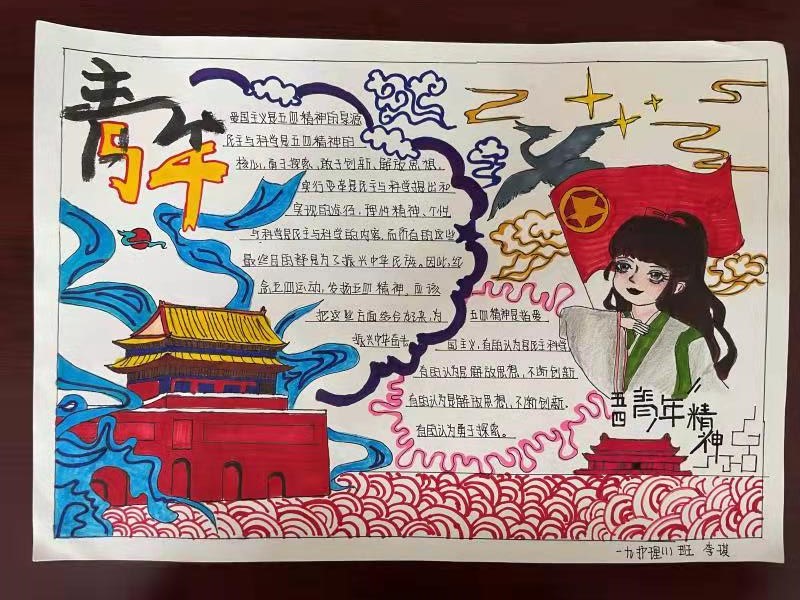 青年
爱国主义是五四精神的导源
民主与科学是五四精神的
核心，勇于探索，敢于创新、解放思想，
实行变革是民主与科学提出和
实现的途径，理性精神、个性
与科学是民主与科学的内容，而所有的这些
最终目的都是为了振兴中华民族。因此，纪
念五四运动，发扬五四精神，应该
把这些方面结合起来，为
振兴中华而去
五四精神是指爱
国主义，有的认为是民主科学
有的认为是解放思想，不断创新
有的认为是解放思想，不断创新。
有的认为勇于探索。
五四青年精神
一九护理(1)班 李琪